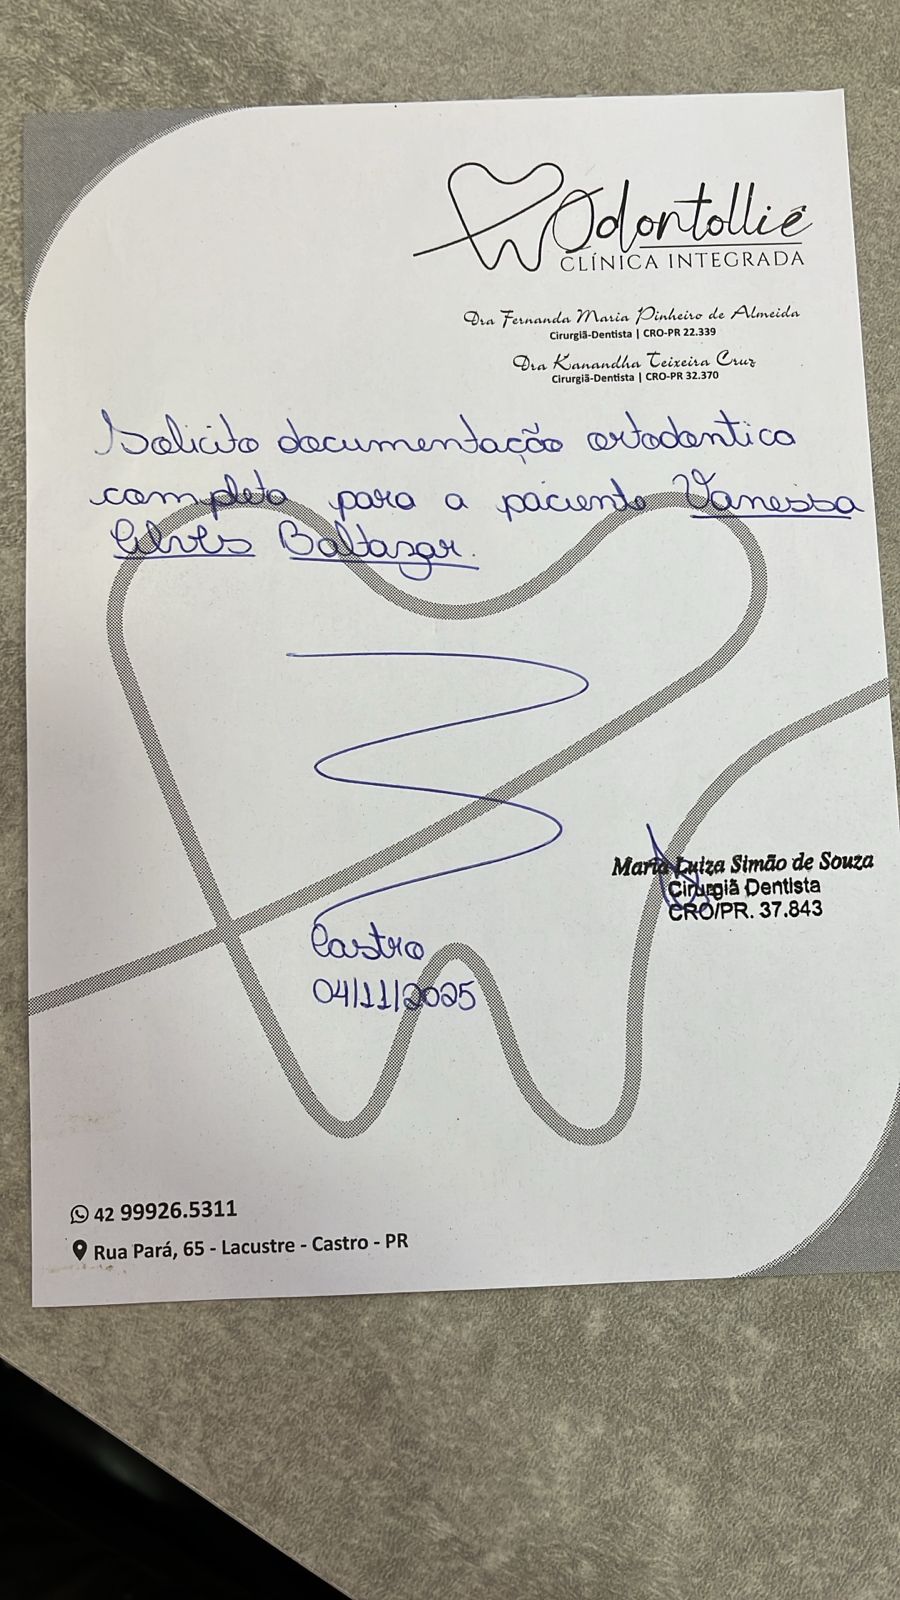 Odontollié
CLÍNICA INTEGRADA
Dra Fernanda Maria Pinheiro de Almeida
Cirurgiã-Dentista | CRO-PR 22.339
Dra Kanandha Teixeira Cruz
Cirurgiã-Dentista | CRO-PR 32.370
Solicito documentação ortodontica
completa para a paciente Vanessa
Alves Baltazar.
Maria Luiza Simão de Souza
Cirurgiã Dentista
CRO/PR. 37.843
Castro
04/11/2025
42 99926.5311
Rua Pará, 65 - Lacustre - Castro - PR